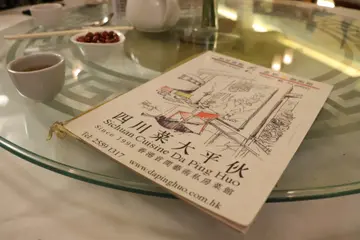 四川菜大平伙
Sichuan Cuisine Da Ping Huo
Since 1998 香港首間藝術私房菜館
Tel: 2559 1317
www.dapinghuo.com.hk